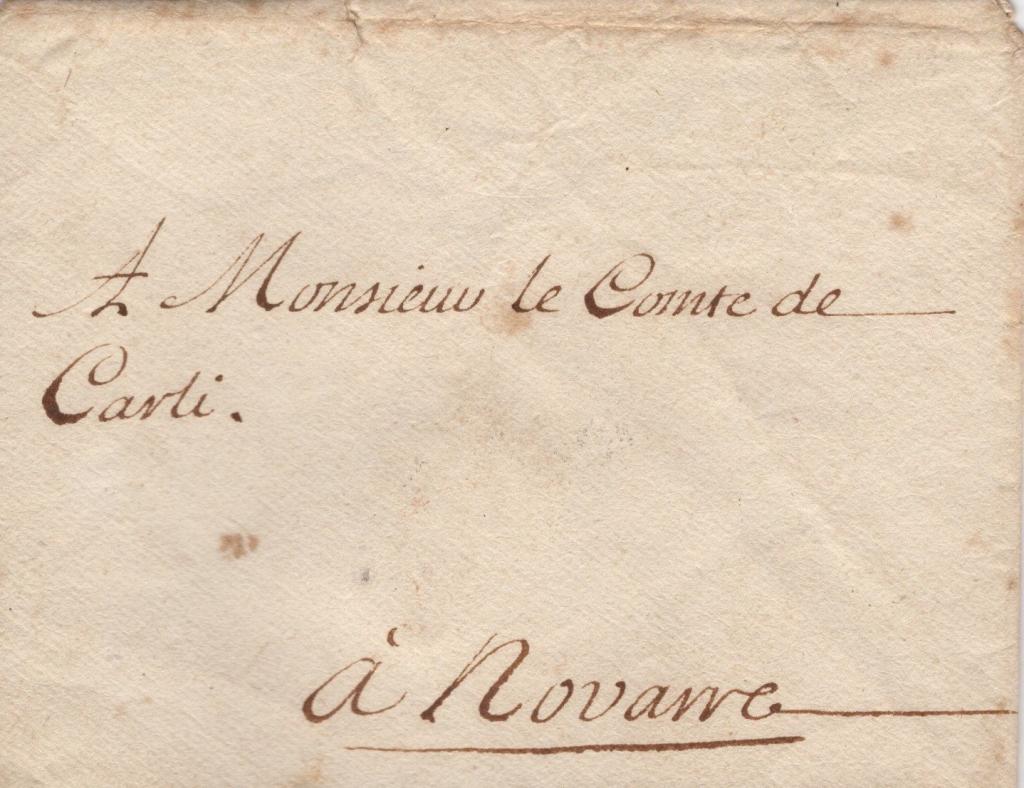 A Monsieur le Comte de
Carli.
à Novarre